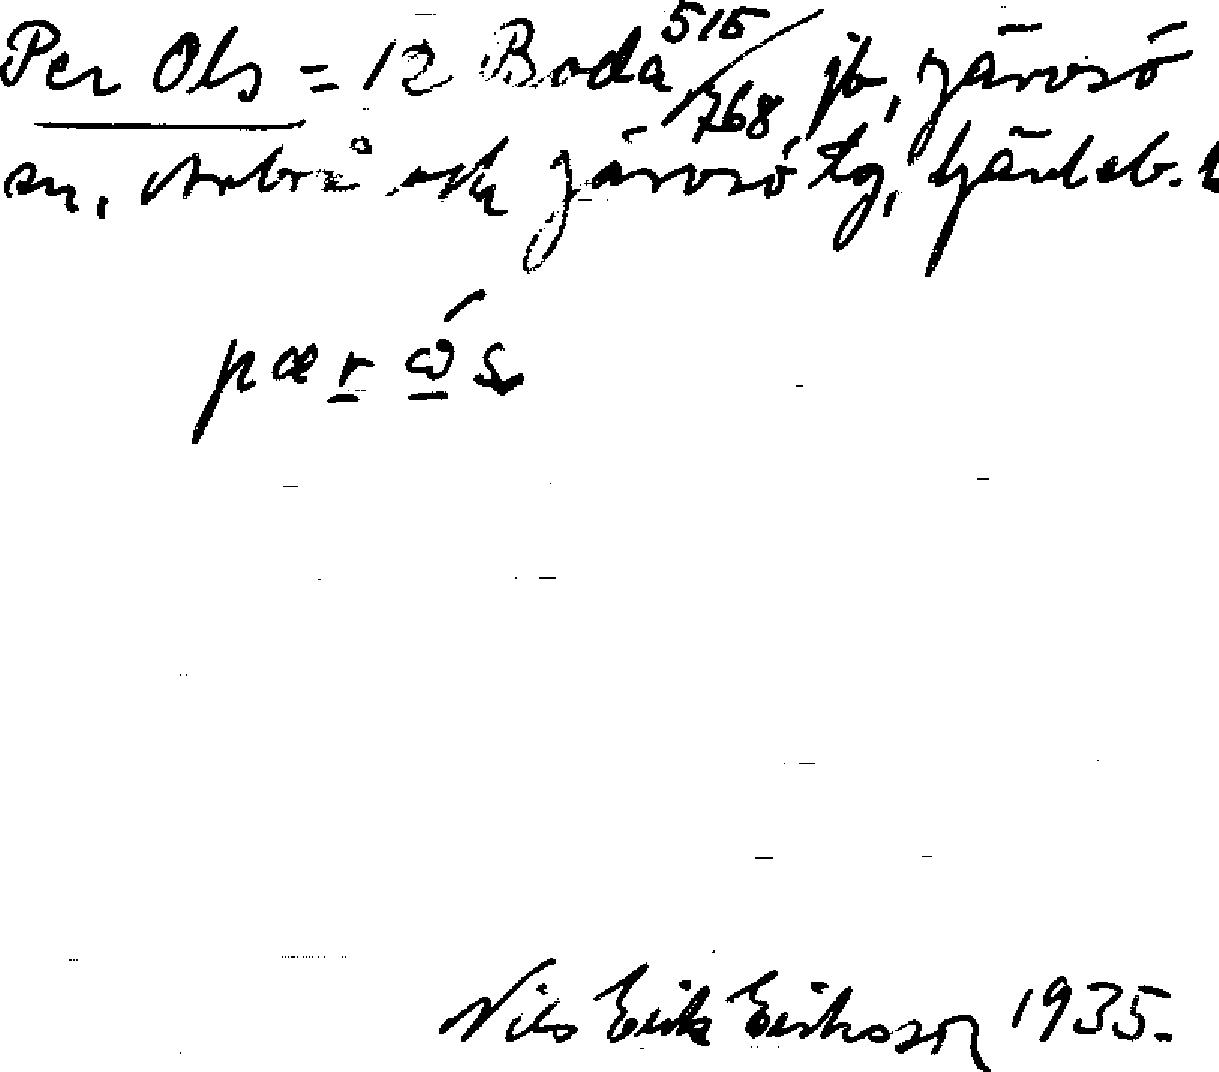 Per Ols = 12 Boda 515/768 jb, Järvsö
sn, Arbrå och Järvsö tg, Gävleb. l
pær ω´s
Nils Erik Eriksson 1935.